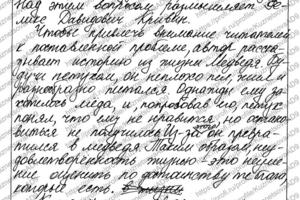 над этим вопросом размышляет Фе-
ликс Давидович Кривин.
Чтобы привлечь внимание читателей
к поставленной проблеме, автор расска-
зывает историю из жизни Медведя. Бу-
дучи петухом, он неплохо пел, жил и
разнообразно питался. Однажды ему за-
хотелось мёда, и, попробовав его, петух
понял, что ему не нравится, но остано-
виться не получилось. Из-за этого он превра-
тился в медведя. Таким образом, неу-
довлетворенность жизнью - это неуме-
ние оценить по достоинству те блага,
которые есть.